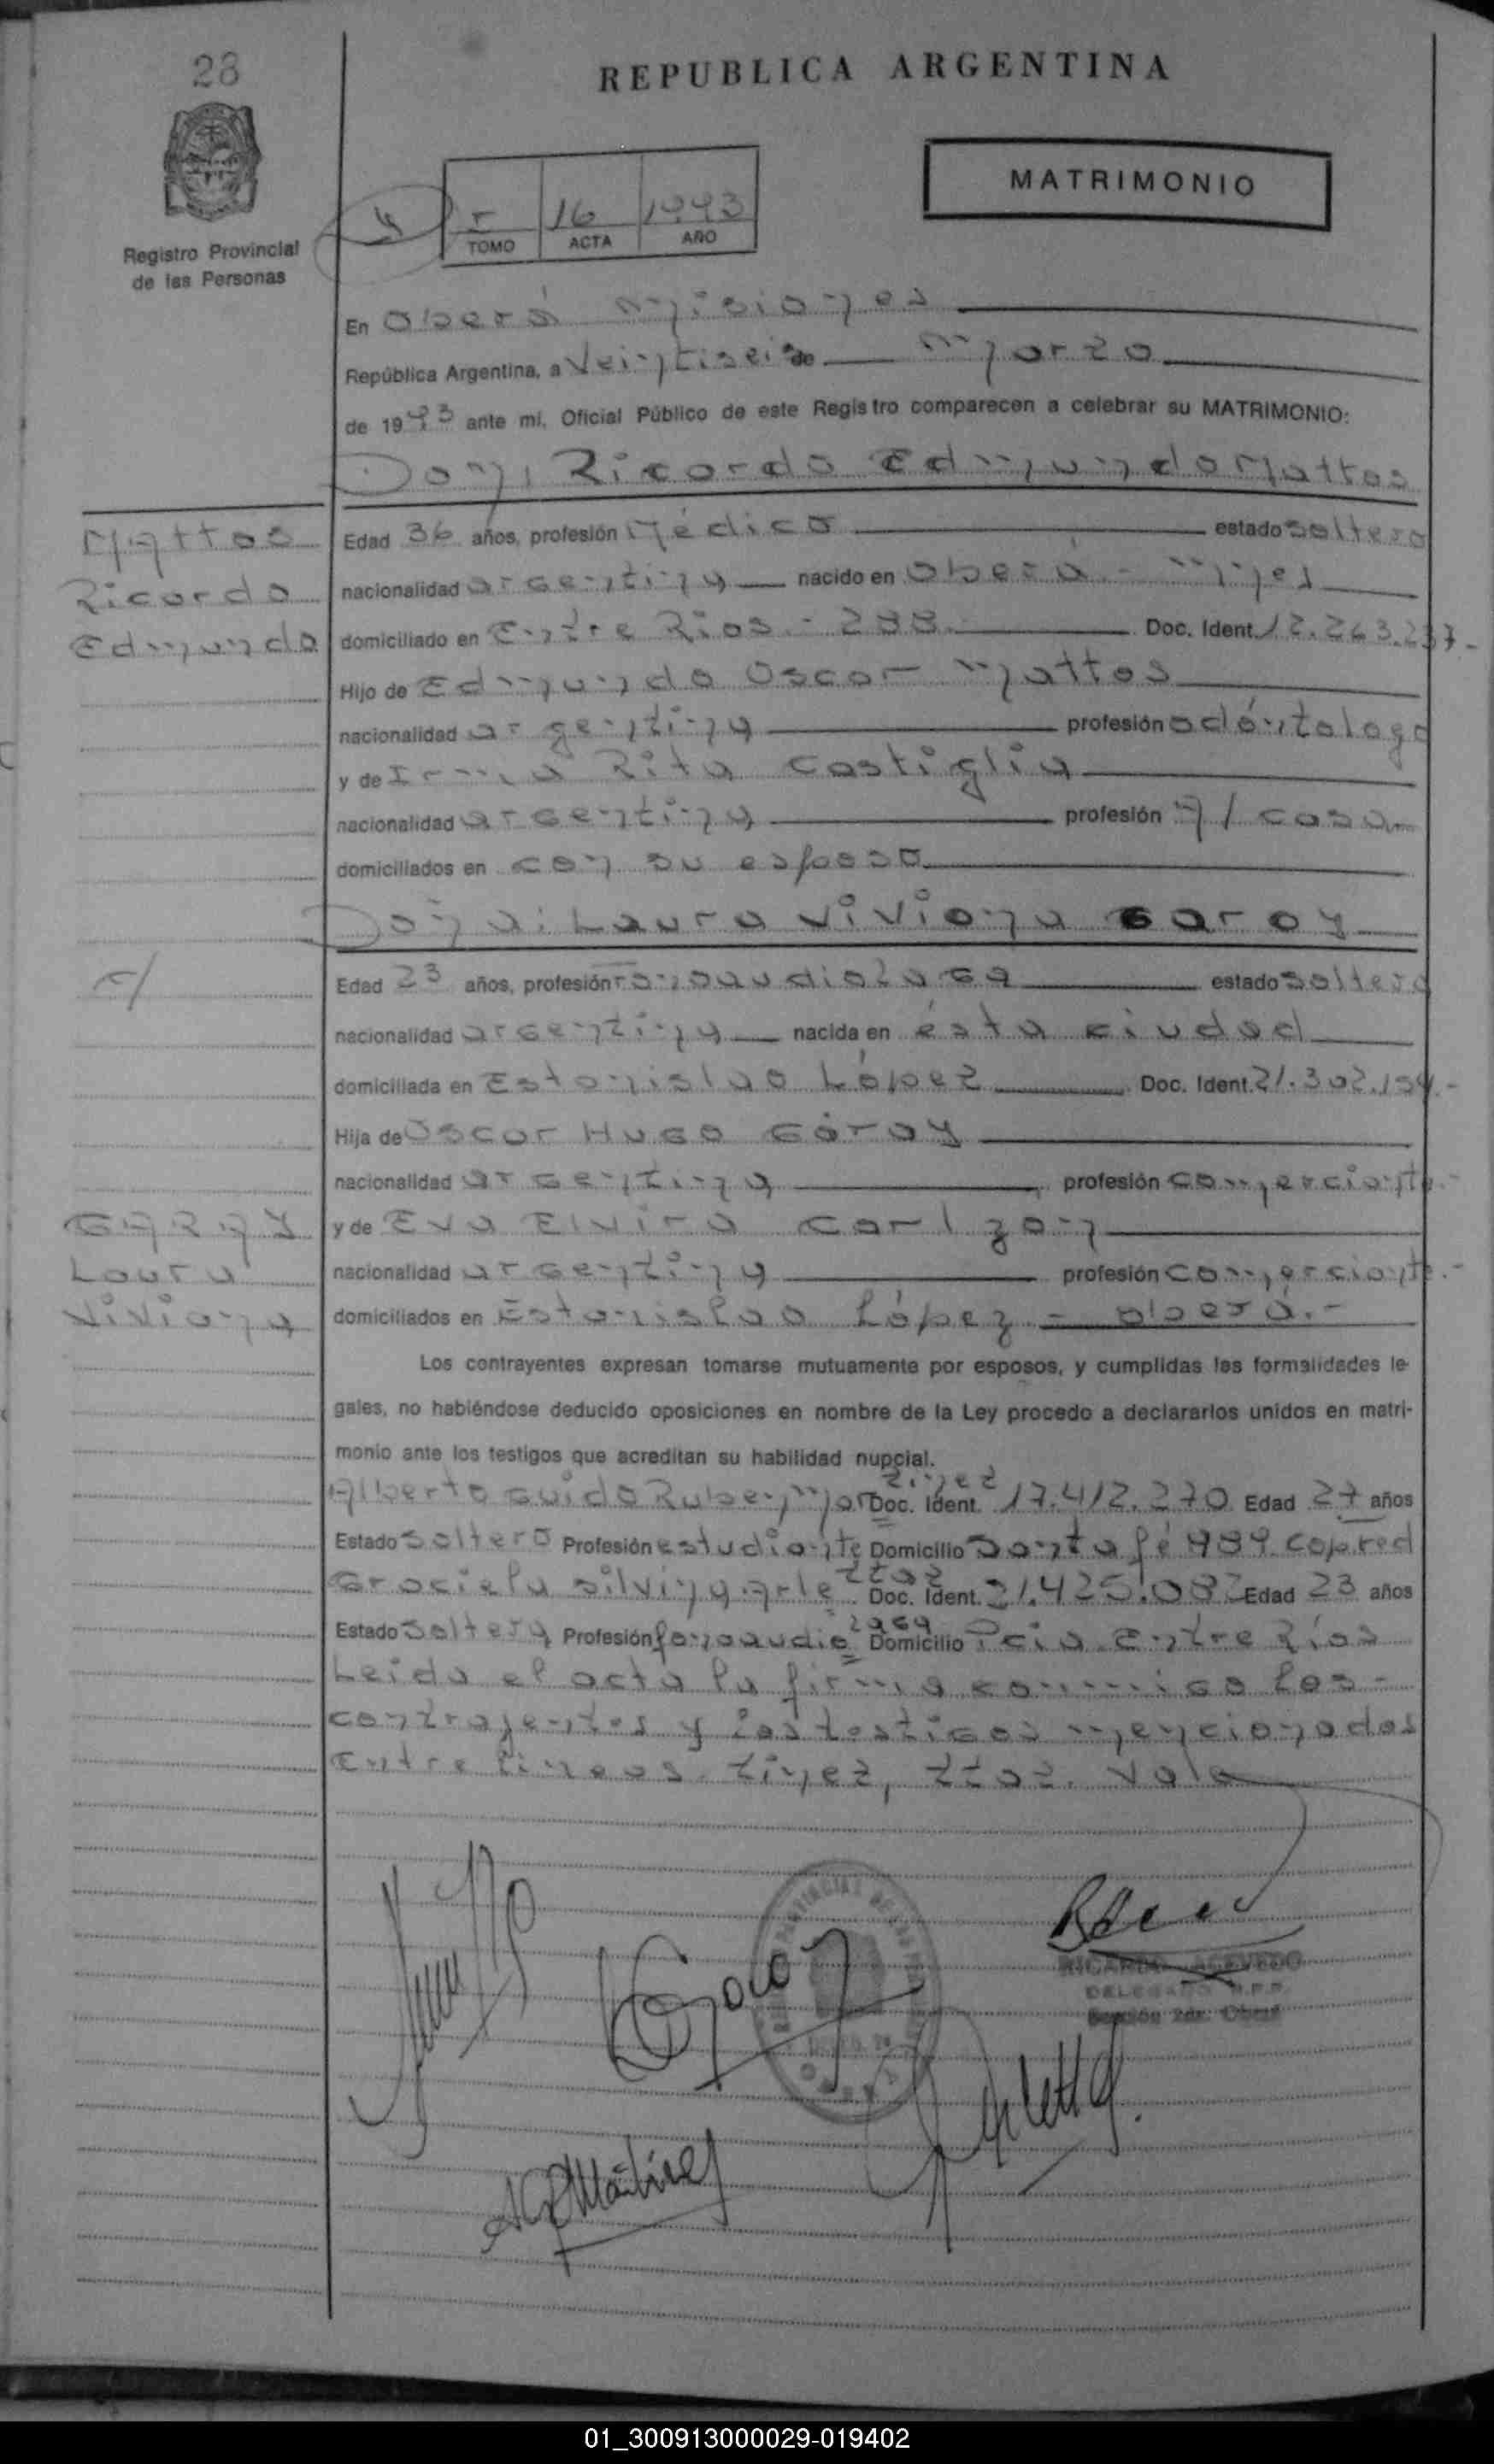 28
REPUBLICA ARGENTINA
MATRIMONIO
16 1993
TOMO ACTA AÑO
Registro Provincial
de las Personas
En Oberá Misiones
República Argentina, a Veintiseis de Marzo
de 1993 ante mí, Oficial Público de este Registro comparecen a celebrar su MATRIMONIO:
Don, Ricardo Edmundo Mattos
Mattos
Ricardo
Edmundo
Edad 36 años, profesión Médico estado soltero
nacionalidad argentina nacido en Oberá - Mnes
domiciliado en Entre Rios - 288 Doc. Ident. 12.263.237.-
Hijo de Edmundo Oscar Mattos
nacionalidad argentina profesión odóntologo
y de Irma Rita Costiglia
nacionalidad argentina profesión A/ casa
domiciliados en con su esposo
Doña: Laura Viviana Garay
c/
Edad 23 años, profesión Fonoaudiologa estado soltera
nacionalidad argentina nacida en ésta ciudad
domiciliada en Estanislao López Doc. Ident. 21.302.154.-
Hija de Oscar Hugo Garay
nacionalidad argentina profesión comerciante.-
y de Eva Elvira Carlzon
nacionalidad argentina profesión comerciante.-
domiciliados en Estanislao López - Oberá.-
GARAY
Laura
Viviana
Los contrayentes expresan tomarse mutuamente por esposos, y cumplidas las formalidades le-
gales, no habiéndose deducido oposiciones en nombre de la Ley procedo a declararlos unidos en matri-
monio ante los testigos que acreditan su habilidad nupcial.
Alberto Guido Ruben Martinez Doc. Ident. 17.412.270 Edad 27 años
Estado soltero Profesión estudiante Domicilio Santa fé 484
Graciela Silvina Arlettaz Doc. Ident. 21.425.082 Edad 23 años
Estado soltera Profesión fonoaudiologa Domicilio Pcia Entre Ríos
Leida el acta la firma conmigo los
contrayentes y los testigos mencionados
Entre lineas. tinez, ttaz. Vale
Garay
RICARDO ACEVEDO
DELEGADO R.P.P.
Sección 2da. Oberá
01_300913000029-019402